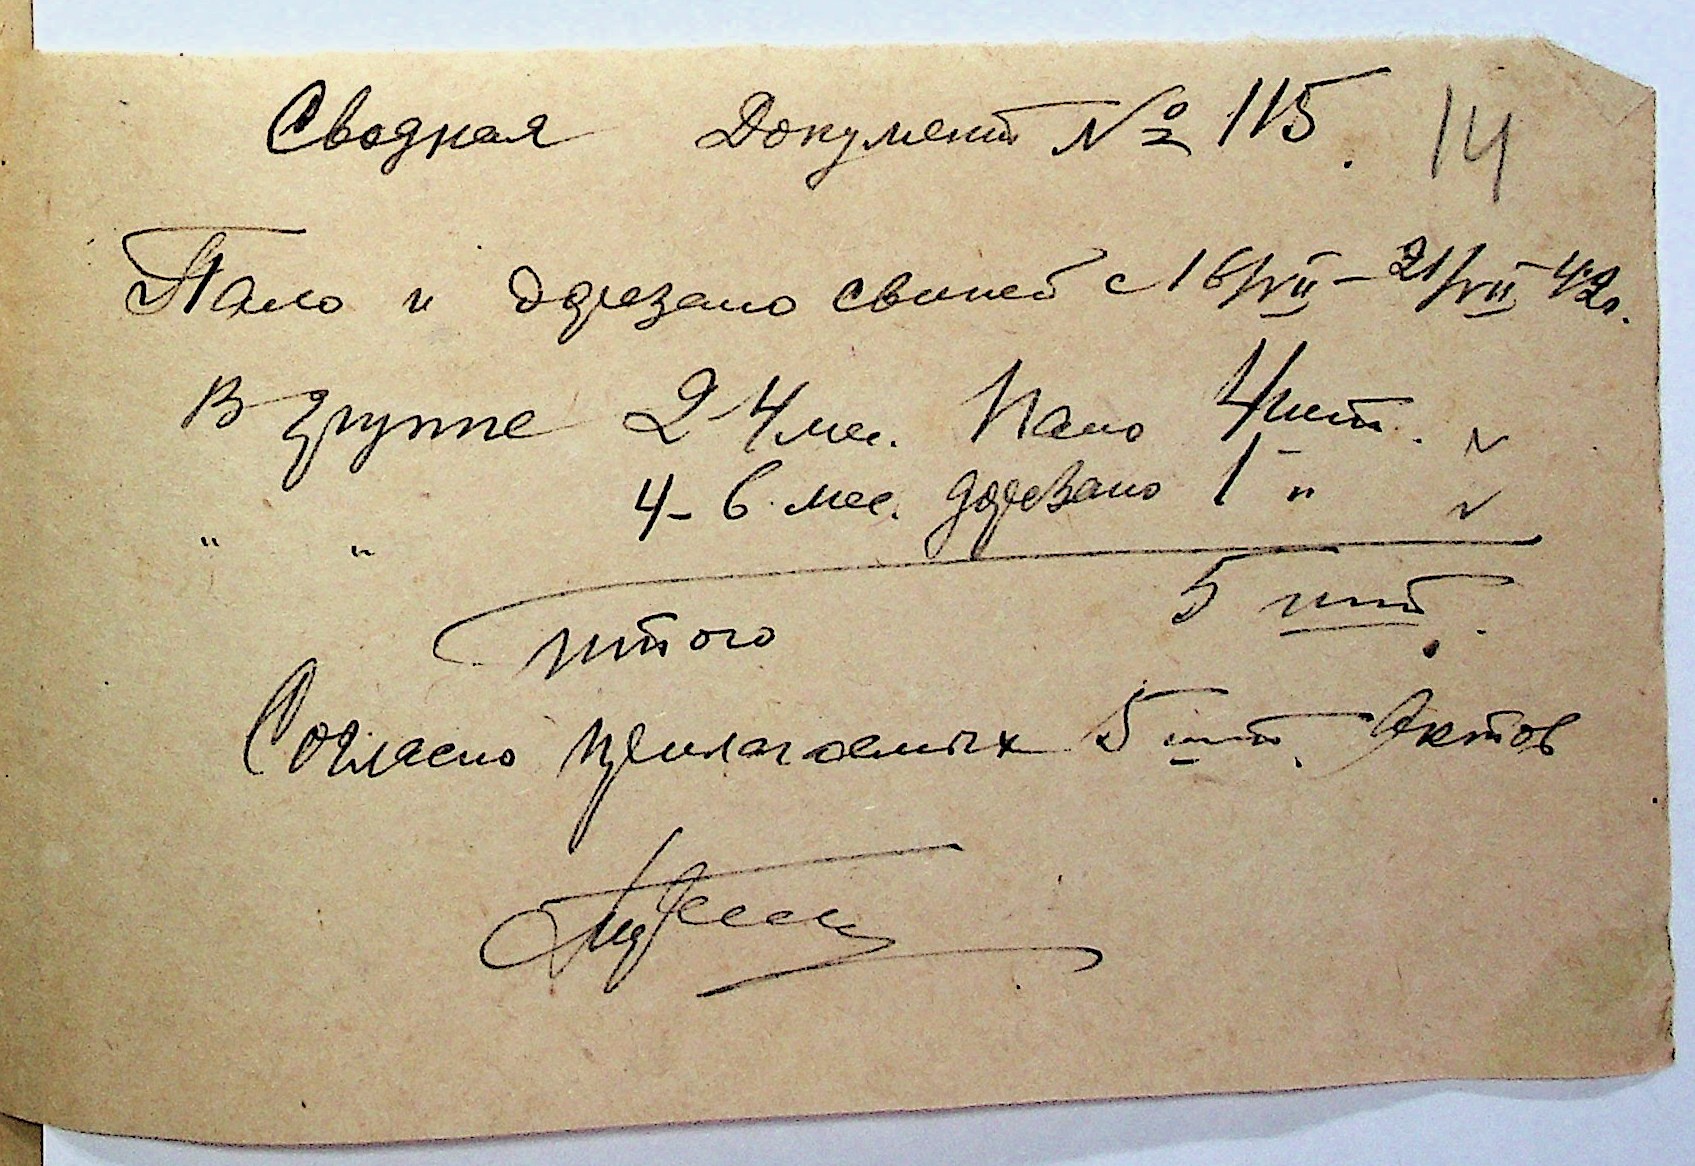 Сводная Документ № 115. 14
Пало и дорезано свиней с 16/VII – 21/VII 42г.
В группе 2-4 мес. Пало 4 шт. ✓
" " 4-6 мес. дорезано 1 " ✓
Итого 5 шт.
Согласно прилагаемых 5 шт. Актов